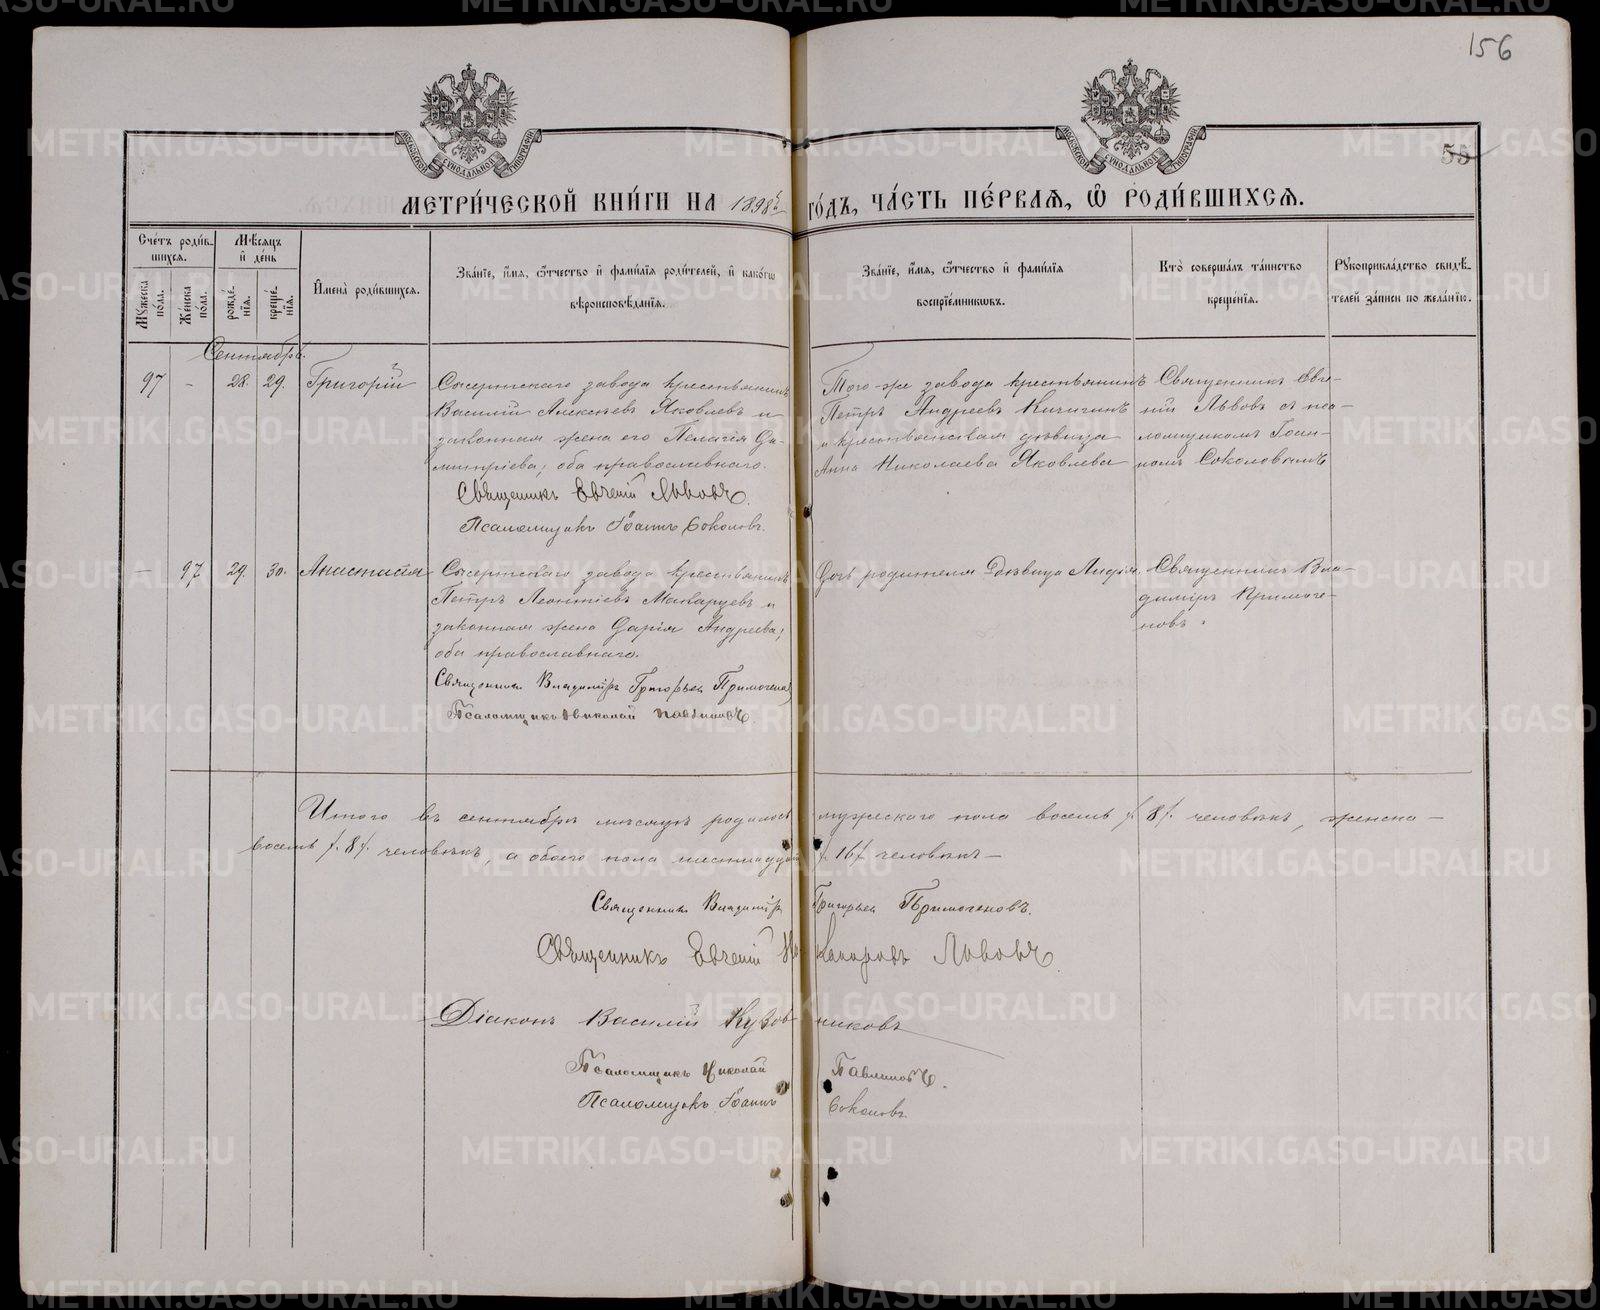 156
55
МОСКОВСКОЙ СѴНОДАЛЬНОЙ ТИПОГРАФІИ
МОСКОВСКОЙ СѴНОДАЛЬНОЙ ТИПОГРАФІИ
МЕТРИ́ЧЕСКОЙ КНИ́ГИ НА 1898й ГО́ДЪ, ЧА́СТЬ ПЕ́РВАЯ, Ѽ РОДИ́ВШИХСЯ.
Сче́тъ роди́вшихся.
Мꙋ́жеска по́ла.
Же́нска по́ла.
Мѣ́сяцъ и҆ де́нь
рожде́нїя.
креще́нїя.
И҆мена̀ роди́вшихся.
Зва́нїе, и҆́мя, ѻ҆́тчество и҆ фами́лїя роди́телей, и҆ како́гѡ
вѣроисповѣ́данїя.
Зва́нїе, и҆́мя, ѻ҆́тчество и҆ фами́лїя
воспрїе́мниковъ.
Кто̀ соверша́лъ та́инство
креще́нїя.
Рꙋкоприкла́дство свидѣ́-
телей за́писи по жела́нїю.
Сентябрь.
97 - 28. 29. Григорій
Сысертскаго завода крестьянинъ
Василій Алексѣевъ Яковлевъ и
законная жена его Пелагія Ди-
митріева; оба православнаго.
Священникъ Евгеній Львовъ.
Псаломщикъ Іоаннъ Соколовъ.
Того-же завода крестьянинъ
Петръ Андреевъ Кичигинъ
и крестьянская дѣвица
Анна Николаева Яковлева
Священникъ Евге-
ній Львовъ съ пса-
ломщикомъ Іоан-
номъ Соколовымъ
- 97 29. 30. Анастасія
Сысертскаго завода крестьянинъ
Петръ Леонтіевъ Макарцевъ и
законная жена Дарія Андреева;
оба православнаго.
Священникъ Владиміръ Григорьевъ Примогеновъ
Псаломщикъ Николай Павлиновъ.
Дочь родителя дѣвица Лидія.
Священникъ Вла-
диміръ Примоге-
новъ.
Итого въ сентябрѣ мѣсяцѣ родилось мужескаго пола восемь /8/ человѣкъ, женска-
восемь /8/ человѣкъ, а обоего пола шестнадцать /16/ человѣкъ-
Священникъ Владиміръ Григорьевъ Примогеновъ.
Священникъ Евгеній Никаноровъ Львовъ
Діаконъ Василій Кузовниковъ
Псаломщикъ Николай Павлиновъ.
Псаломщикъ Іоаннъ Соколовъ.
METRIKI.GASO-URAL.RU